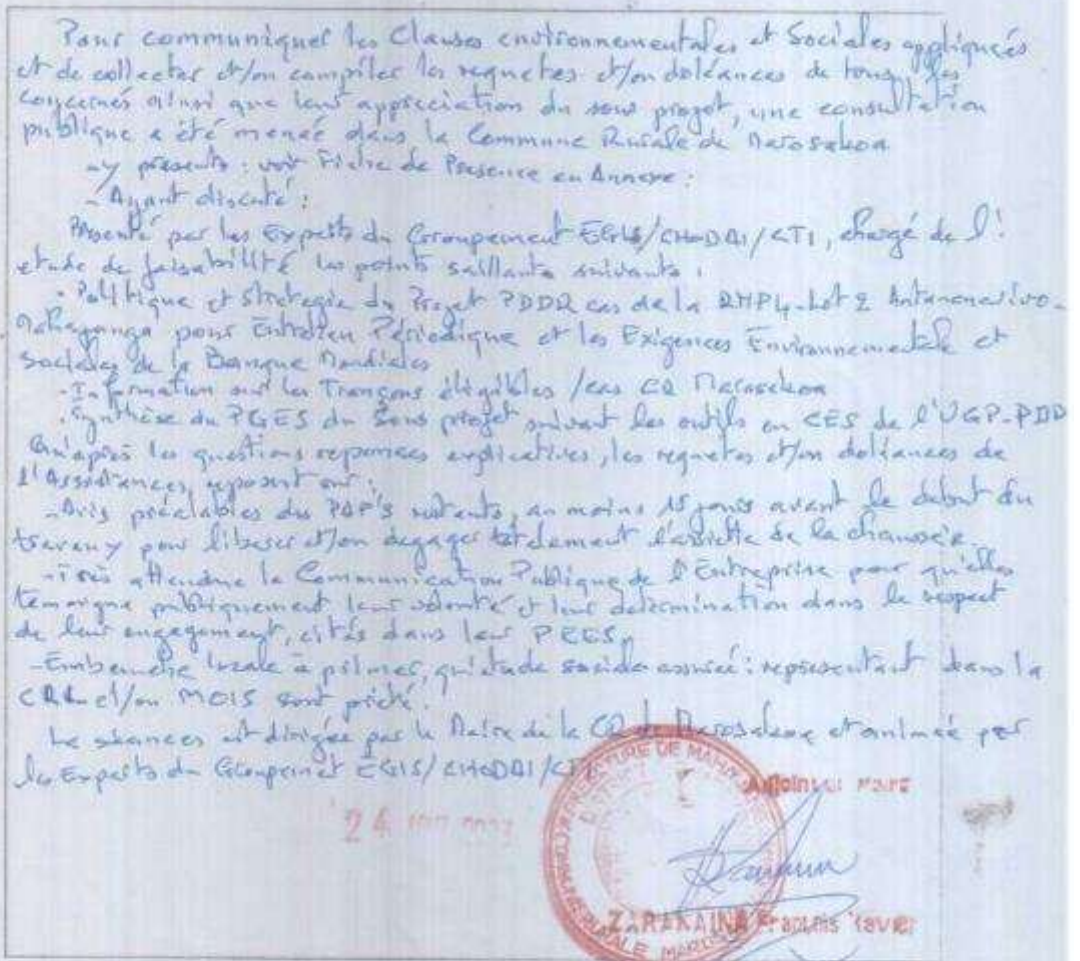 Pour communiquer les Clauses environnementales et Sociales appliquées
et de collecter et/ou compiler les requetes et/ou doléances de tous les
concernés ainsi que leur appréciation du sous projet, une consultation
publique a été menée dans la Commune Rurale de Marosakoa
-y présents : voir Fiche de Presence en Annexe :
- Ayant discuté :
Présenté par les Experts du Groupement EGIS/CHODAI/CTI, chargé de l'
etude de faisabilité les points saillants suivants :
. Politique et Strategie du Projet PDDR cas de la RNP4-Lot 2 Antananarivo-
Mahajanga pour Entretien Périodique et les Exigences Environnementale et
Sociales de la Banque Mondiales
. Information sur les Tronçons éligibles /cas CR Marosakoa
. Synthèse du PGES du Sous projet suivant les outils en CES de l'UGP-PDD
Qu'après les questions reponses explicatives, les requetes et/ou doléances de
l'Assistances, reposent sur :
-Avis préalables des PAP's, au moins 15 jours avant le debut du
travaux pour liberer et/ou degager totalement l'assiette de la chaussée.
-Très attendue la Communication Publique de l'Entreprise pour qu'elles
temoigne publiquement leur volonté et leur determination dans le respect
de leur engagement, cités dans leur PEES
-Embauche locale à primer, : representant dans la
CRL et/ou MOIS
Le séances est dirigée par le Maire de la CR de Marosakoa et animée par
les Experts du Groupement EGIS/CHODAI/CTI
24
Adjoint au Maire
ZARAKAINA François Xavier